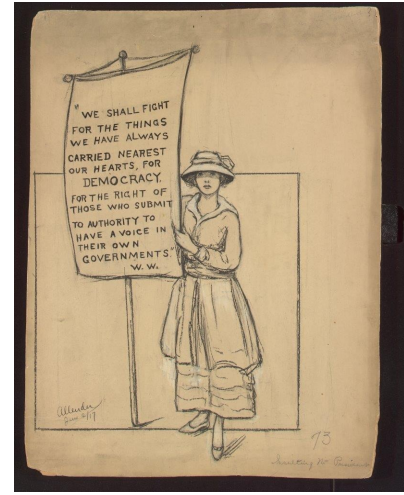 "WE SHALL FIGHT
FOR THE THINGS
WE HAVE ALWAYS
CARRIED NEAREST
OUR HEARTS, FOR
DEMOCRACY,
FOR THE RIGHT OF
THOSE WHO SUBMIT
TO AUTHORITY TO
HAVE A VOICE IN
THEIR OWN
GOVERNMENTS."
W. W.
Allender
73